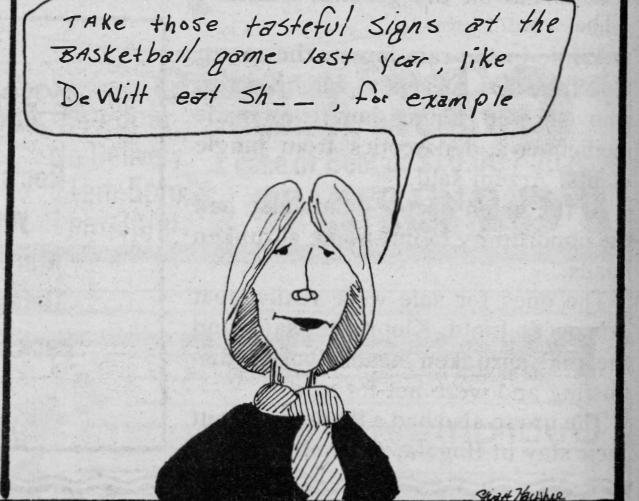 TAKE those tasteful signs at the
BASKetball game last year, like
DeWitt eat Sh__, for example